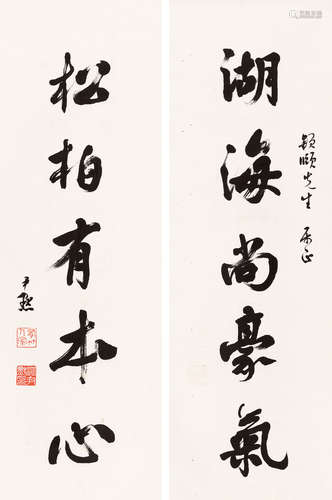 湖海尚豪氣
先生 正
松柏有本心
尹默